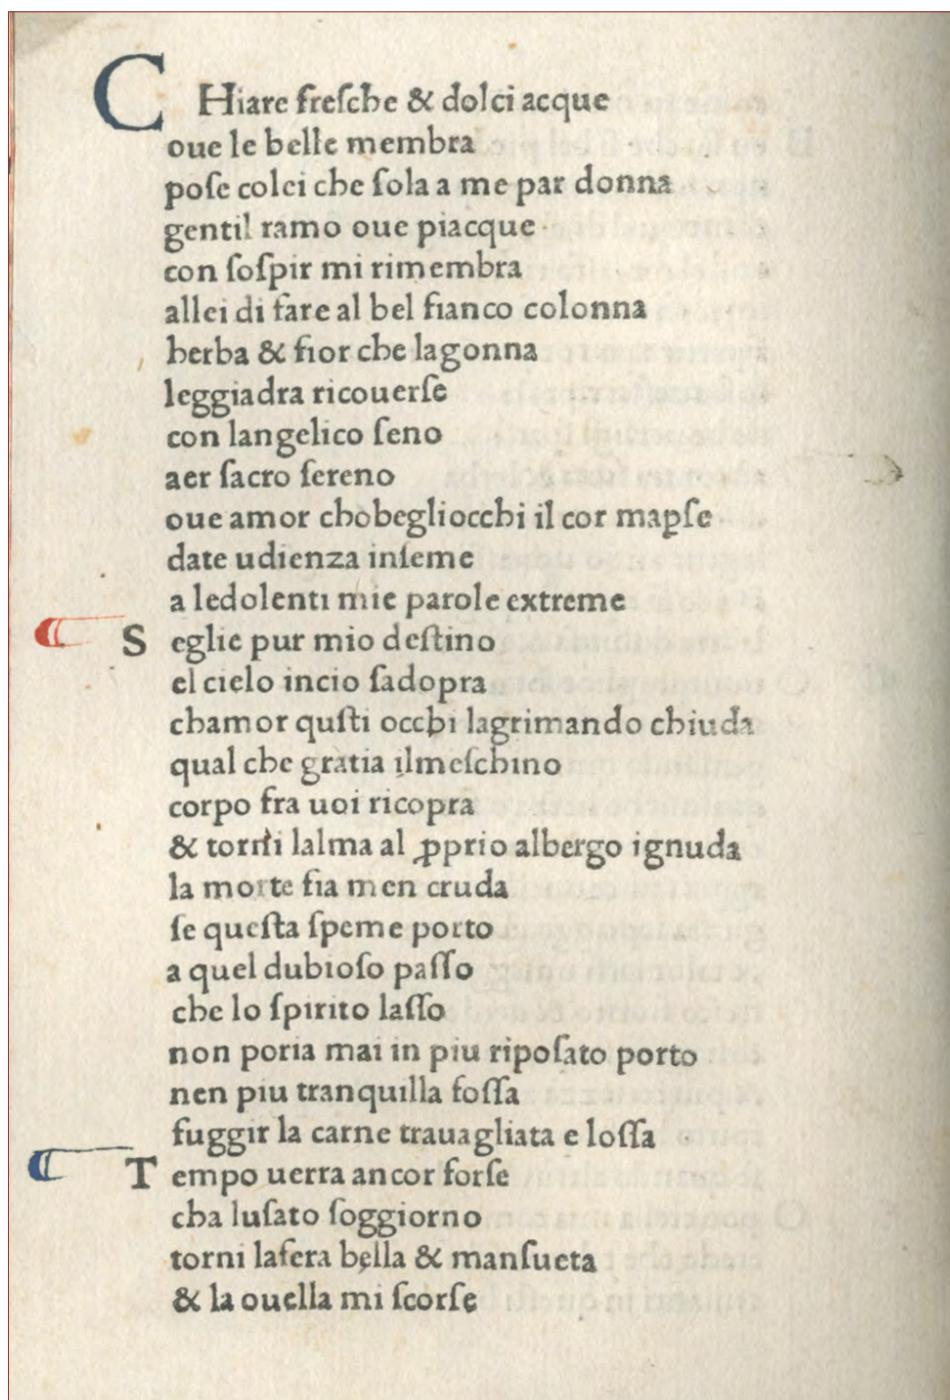 CHiare freſche & dolci acque
oue le belle membra
poſe colei che ſola a me par donna
gentil ramo oue piacque
con ſoſpir mi rimembra
allei di fare al bel fianco colonna
herba & fior che lagonna
leggiadra ricouerſe
con langelico ſeno
aer ſacro ſereno
oue amor chobegliocchi il cor mapſe
date udienza inſeme
a ledolenti mie parole extreme
S eglie pur mio deſtino
el cielo incio ſadopra
chamor quſti occhi lagrimando chiuda
qual che gratia ilmeſchino
corpo fra uoi ricopra
& torni lalma al ꝓprio albergo ignuda
la morte fia men cruda
ſe queſta ſpeme porto
a quel dubioſo paſſo
che lo ſpirito laſſo
non poria mai in piu ripoſato porto
nen piu tranquilla foſſa
fuggir la carne trauagliata e loſſa
T empo uerra ancor forſe
cha luſato ſoggiorno
torni lafera bella & manſueta
& la ouella mi ſcorſe